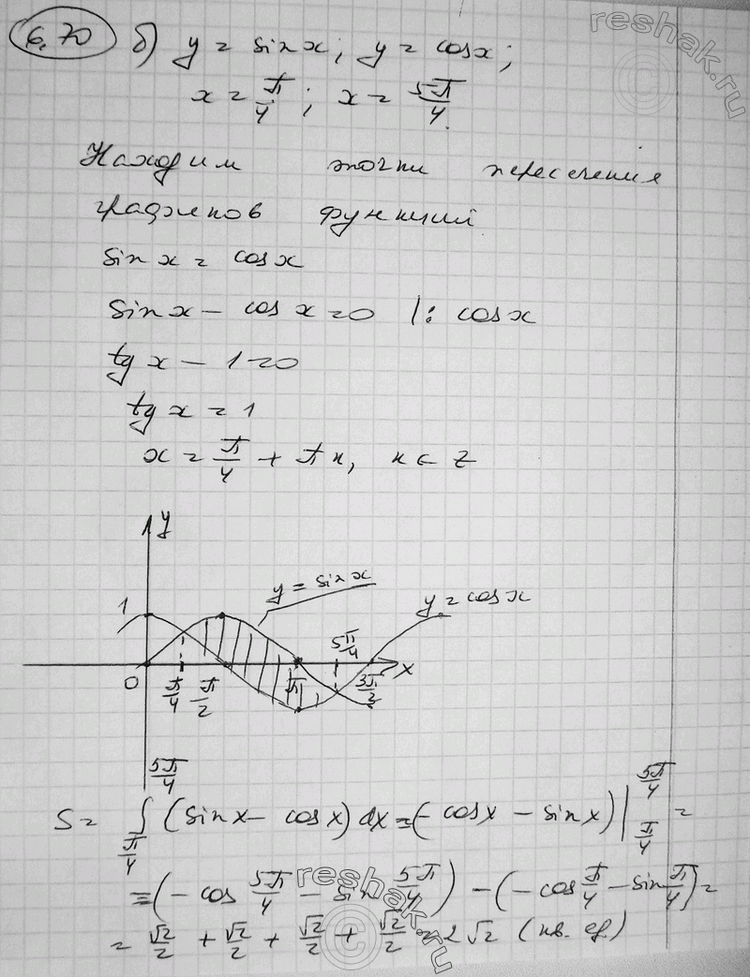 6.70 б) y = sin x; y = cos x;
x = π/4; x = 5π/4.
Находим точки пересечения
графиков функций
sin x = cos x
sin x – cos x = 0 |: cos x
tg x – 1 = 0
tg x = 1
x = π/4 + πn, n ∈ Z
y
1
y = sin x
y = cos x
0 π/4 π/2 π 5π/4 3π/2 x
S = ∫_{π/4}^{5π/4} (sin x – cos x) dx = (– cos x – sin x) |_{π/4}^{5π/4} =
= (– cos 5π/4 – sin 5π/4) – (– cos π/4 – sin π/4) =
= √2/2 + √2/2 + √2/2 + √2/2 = 2√2 (кв. ед.)
reshak.ru
©
reshak.ru
©